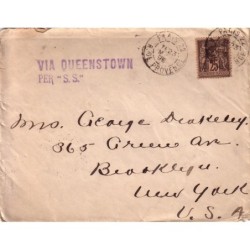 VIA QUEENSTOWN
PER "S.S."
Mrs. George Brakeley
365 Greene Av.
Brooklyn.
New York
U.S.A